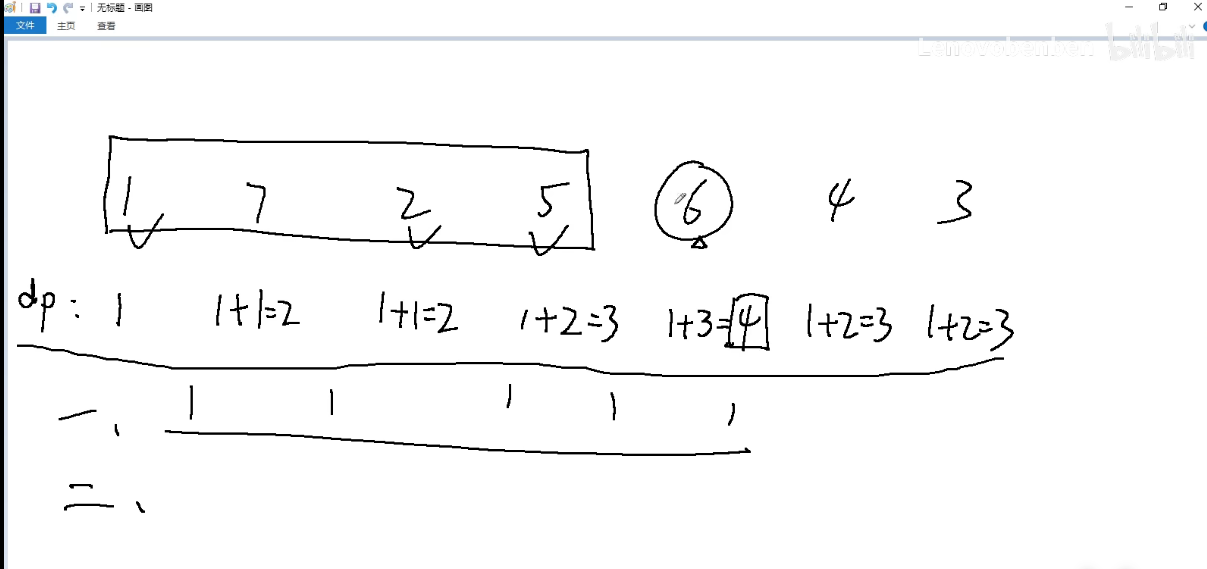 无标题 - 画图
文件 主页 查看
bilibili
1 7 2 5 6 4 3
dp: 1 1+1=2 1+1=2 1+2=3 1+3=4 1+2=3 1+2=3
一、 1 1 1 1 1
二、